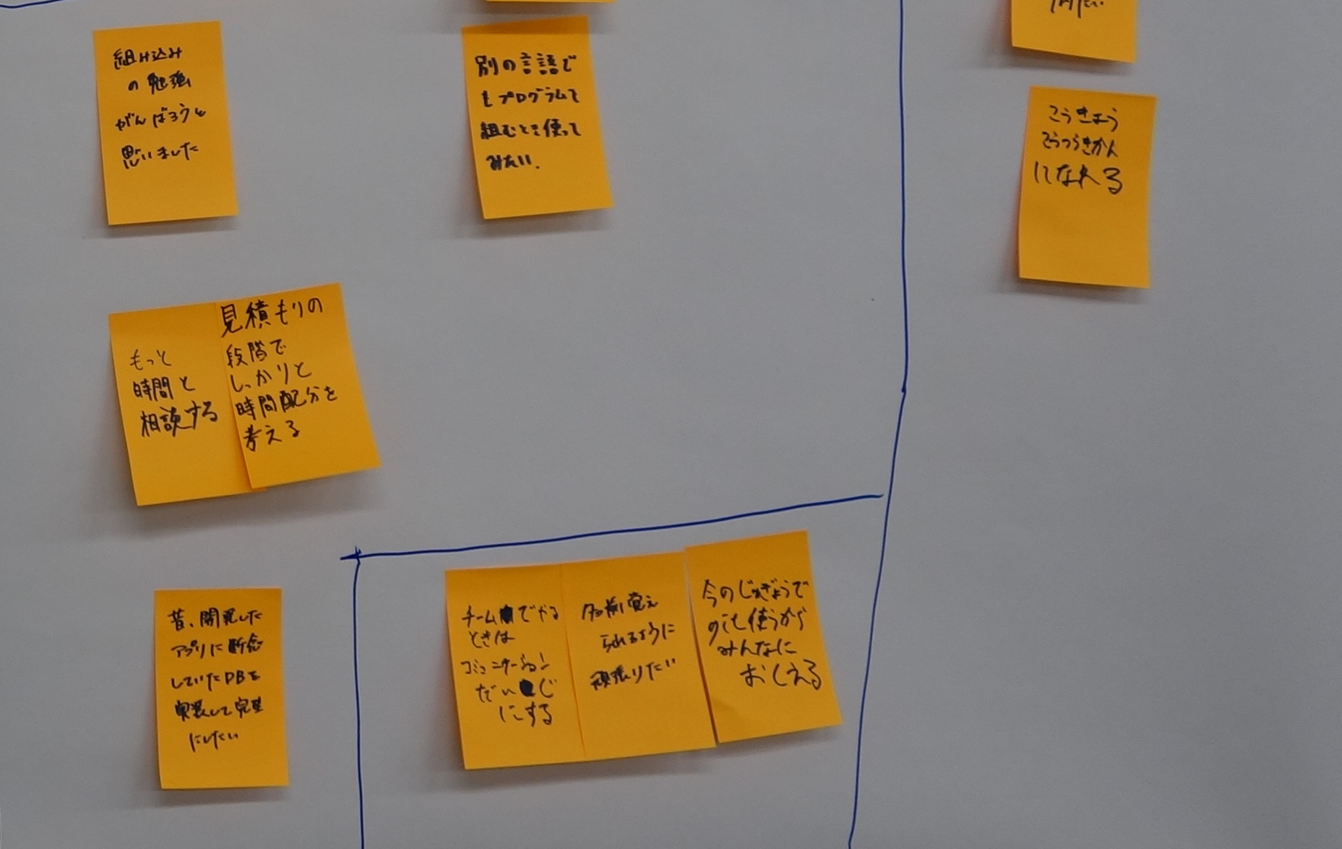 組み込み
の勉強
がんばろうと
思いました
別の言語で
もプログラムで
組むとき使って
みたい.
こうきょう
こうつうきかん
になれる
もっと
時間と
相談する
見積もりの
段階で
しっかりと
時間配分を
考える
昔、開発した
アプリに断念
していたDBを
実装して完璧
にしたい
チームでやる
ときは
コミュニケーション
だいじ
にする
名前覚え
られるように
頑張りたい
今のじゅぎょうで
使うから
みんなに
おしえる